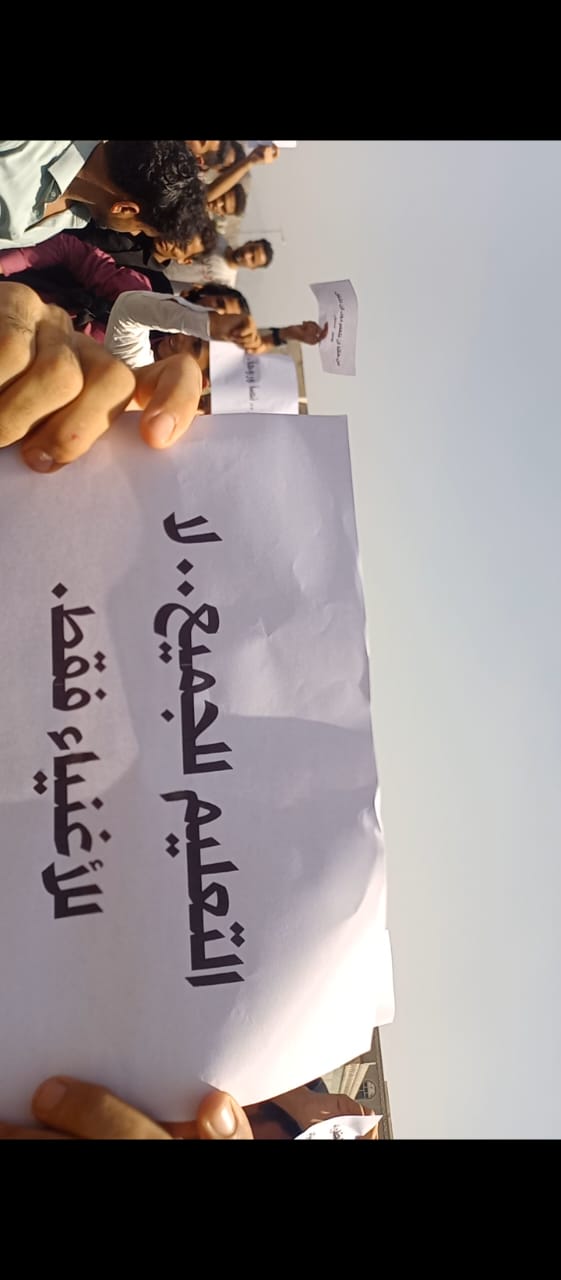 التعليم للجميع.. لا
للأغنياء فقط.